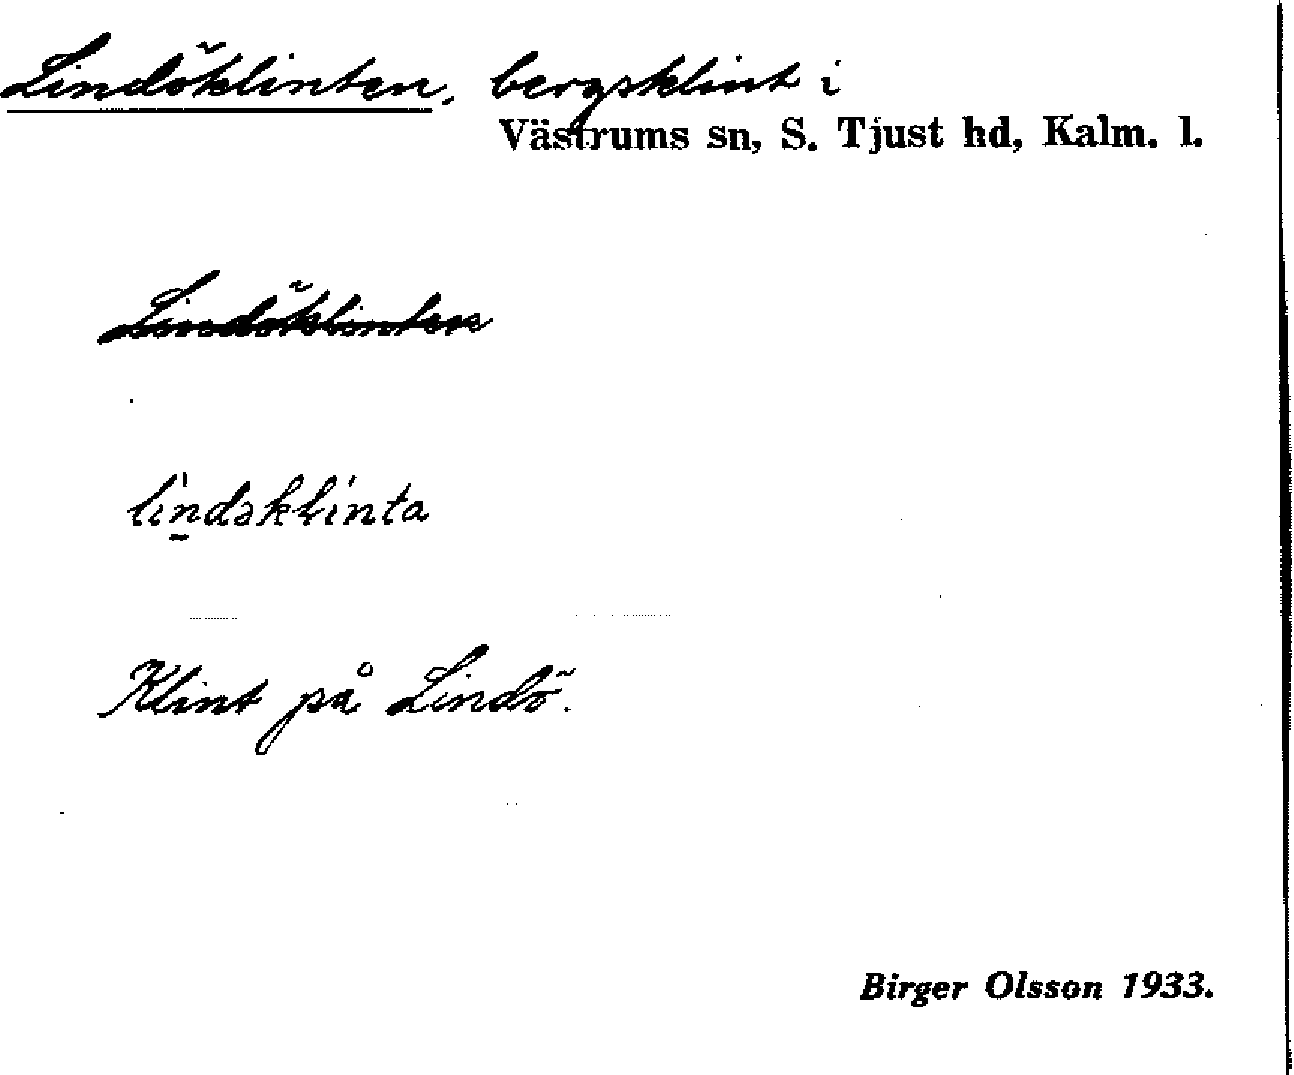 Lindöklinten, bergsklint i
Västrums sn, S. Tjust hd, Kalm. l.
Lindöklinten
lindəklinta
Klint på Lindö.
Birger Olsson 1933.